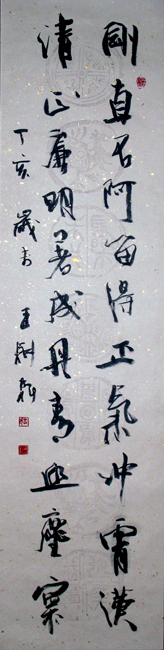 刚直不阿留得正气冲霄汉
清正廉明著成丹青照尘寰
丁亥岁书